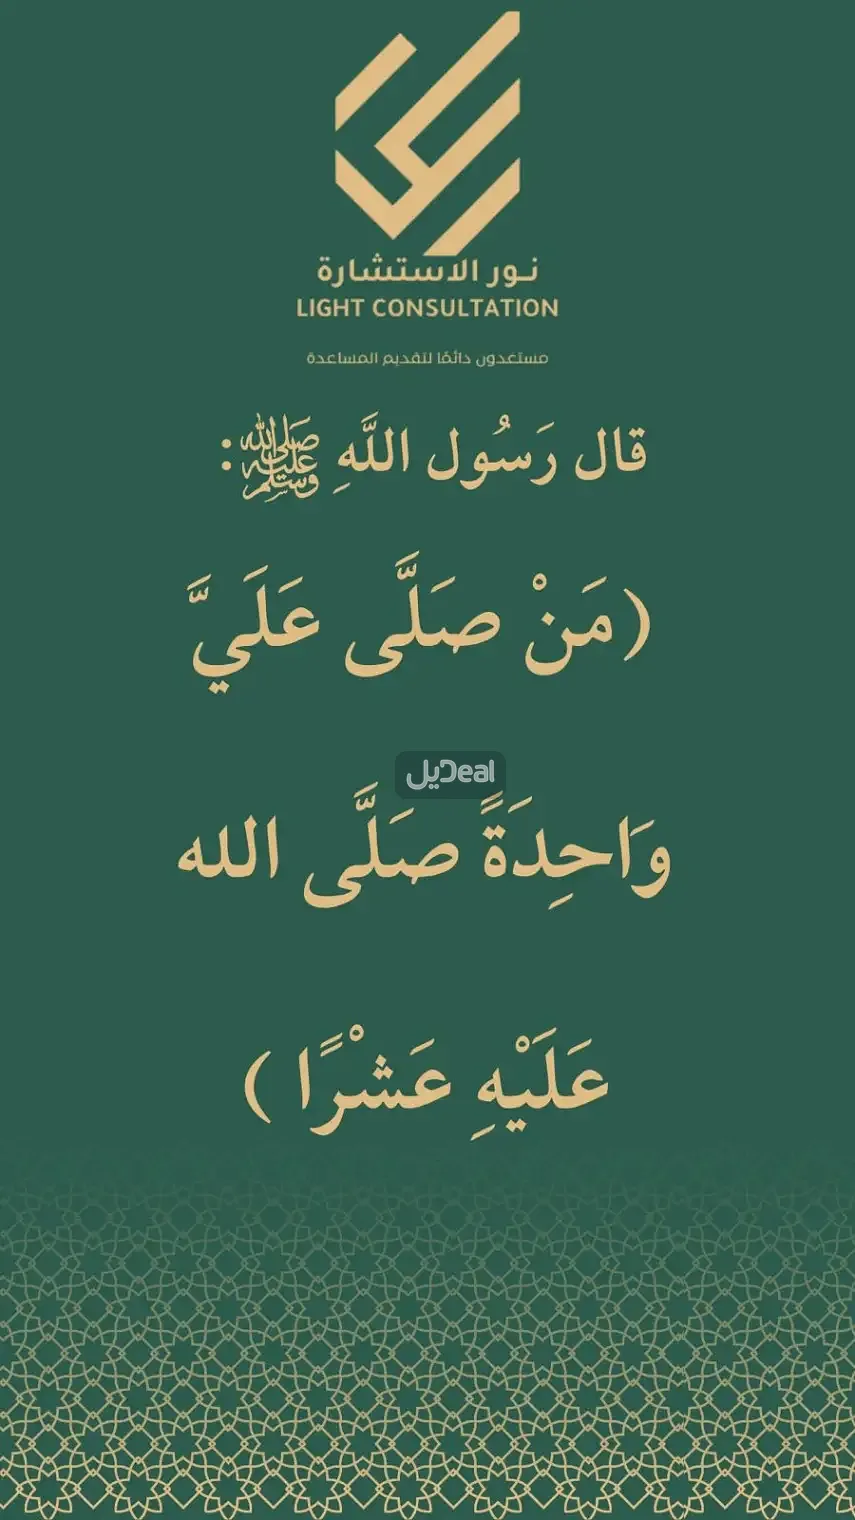 نور الاستشارة
LIGHT CONSULTATION
مستعدون دائمًا لتقديم المساعدة
قال رَسُول اللَّهِ ﷺ:
(مَنْ صَلَّى عَلَيَّ
Dealديل
وَاحِدَةً صَلَّى الله
عَلَيْهِ عَشْرًا )